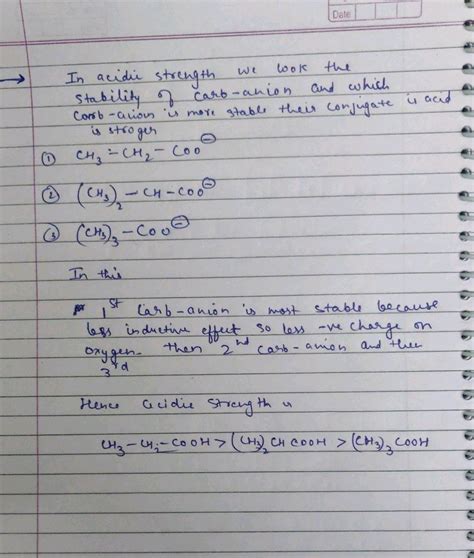 Date
→ In acidic strength we look the
stability of carb-anion and which
carb-anion is more stable their conjugate is acid
is stroger
① CH₃-CH₂-COO⊖
② (CH₃)₂-CH-COO⊖
③ (CH₃)₃-COO⊖
In this
1st Carb-anion is most stable because
less inductive effect so less -ve charge on
oxygen. then 2nd carb-anion and then
3rd
Hence acidic strength is
CH₃-CH₂-COOH > (CH₃)₂CHCOOH > (CH₃)₃COOH